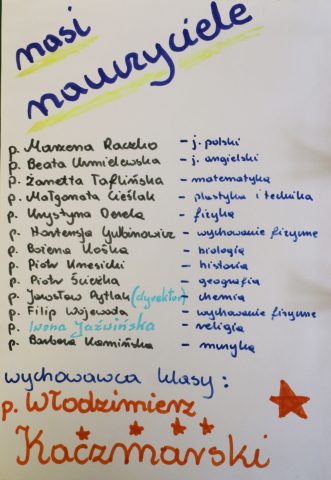 nasi
nauczyciele
p. Marzena Raczko - j. polski
p. Beata Chmielewska - j. angielski
p. Żanetta Taflińska - matematyka
p. Małgorzata Cieślak - plastyka i technika
p. Krystyna - fizyka
p. Hortensja Gulbinowicz - wychowanie fizyczne
p. Bożena Kośka - biologia
p. Piotr Kmesicki - historia
p. Piotr Ścieżka - geografia
p. Jarosław Pytlak (dyrektor) - chemia
p. Filip Wojewoda - wychowanie fizyczne
p. Iwona Jaźwińska - religia
p. Barbara Kamińska - muzyka
wychowawca klasy:
p. Włodzimierz
Kaczmarski